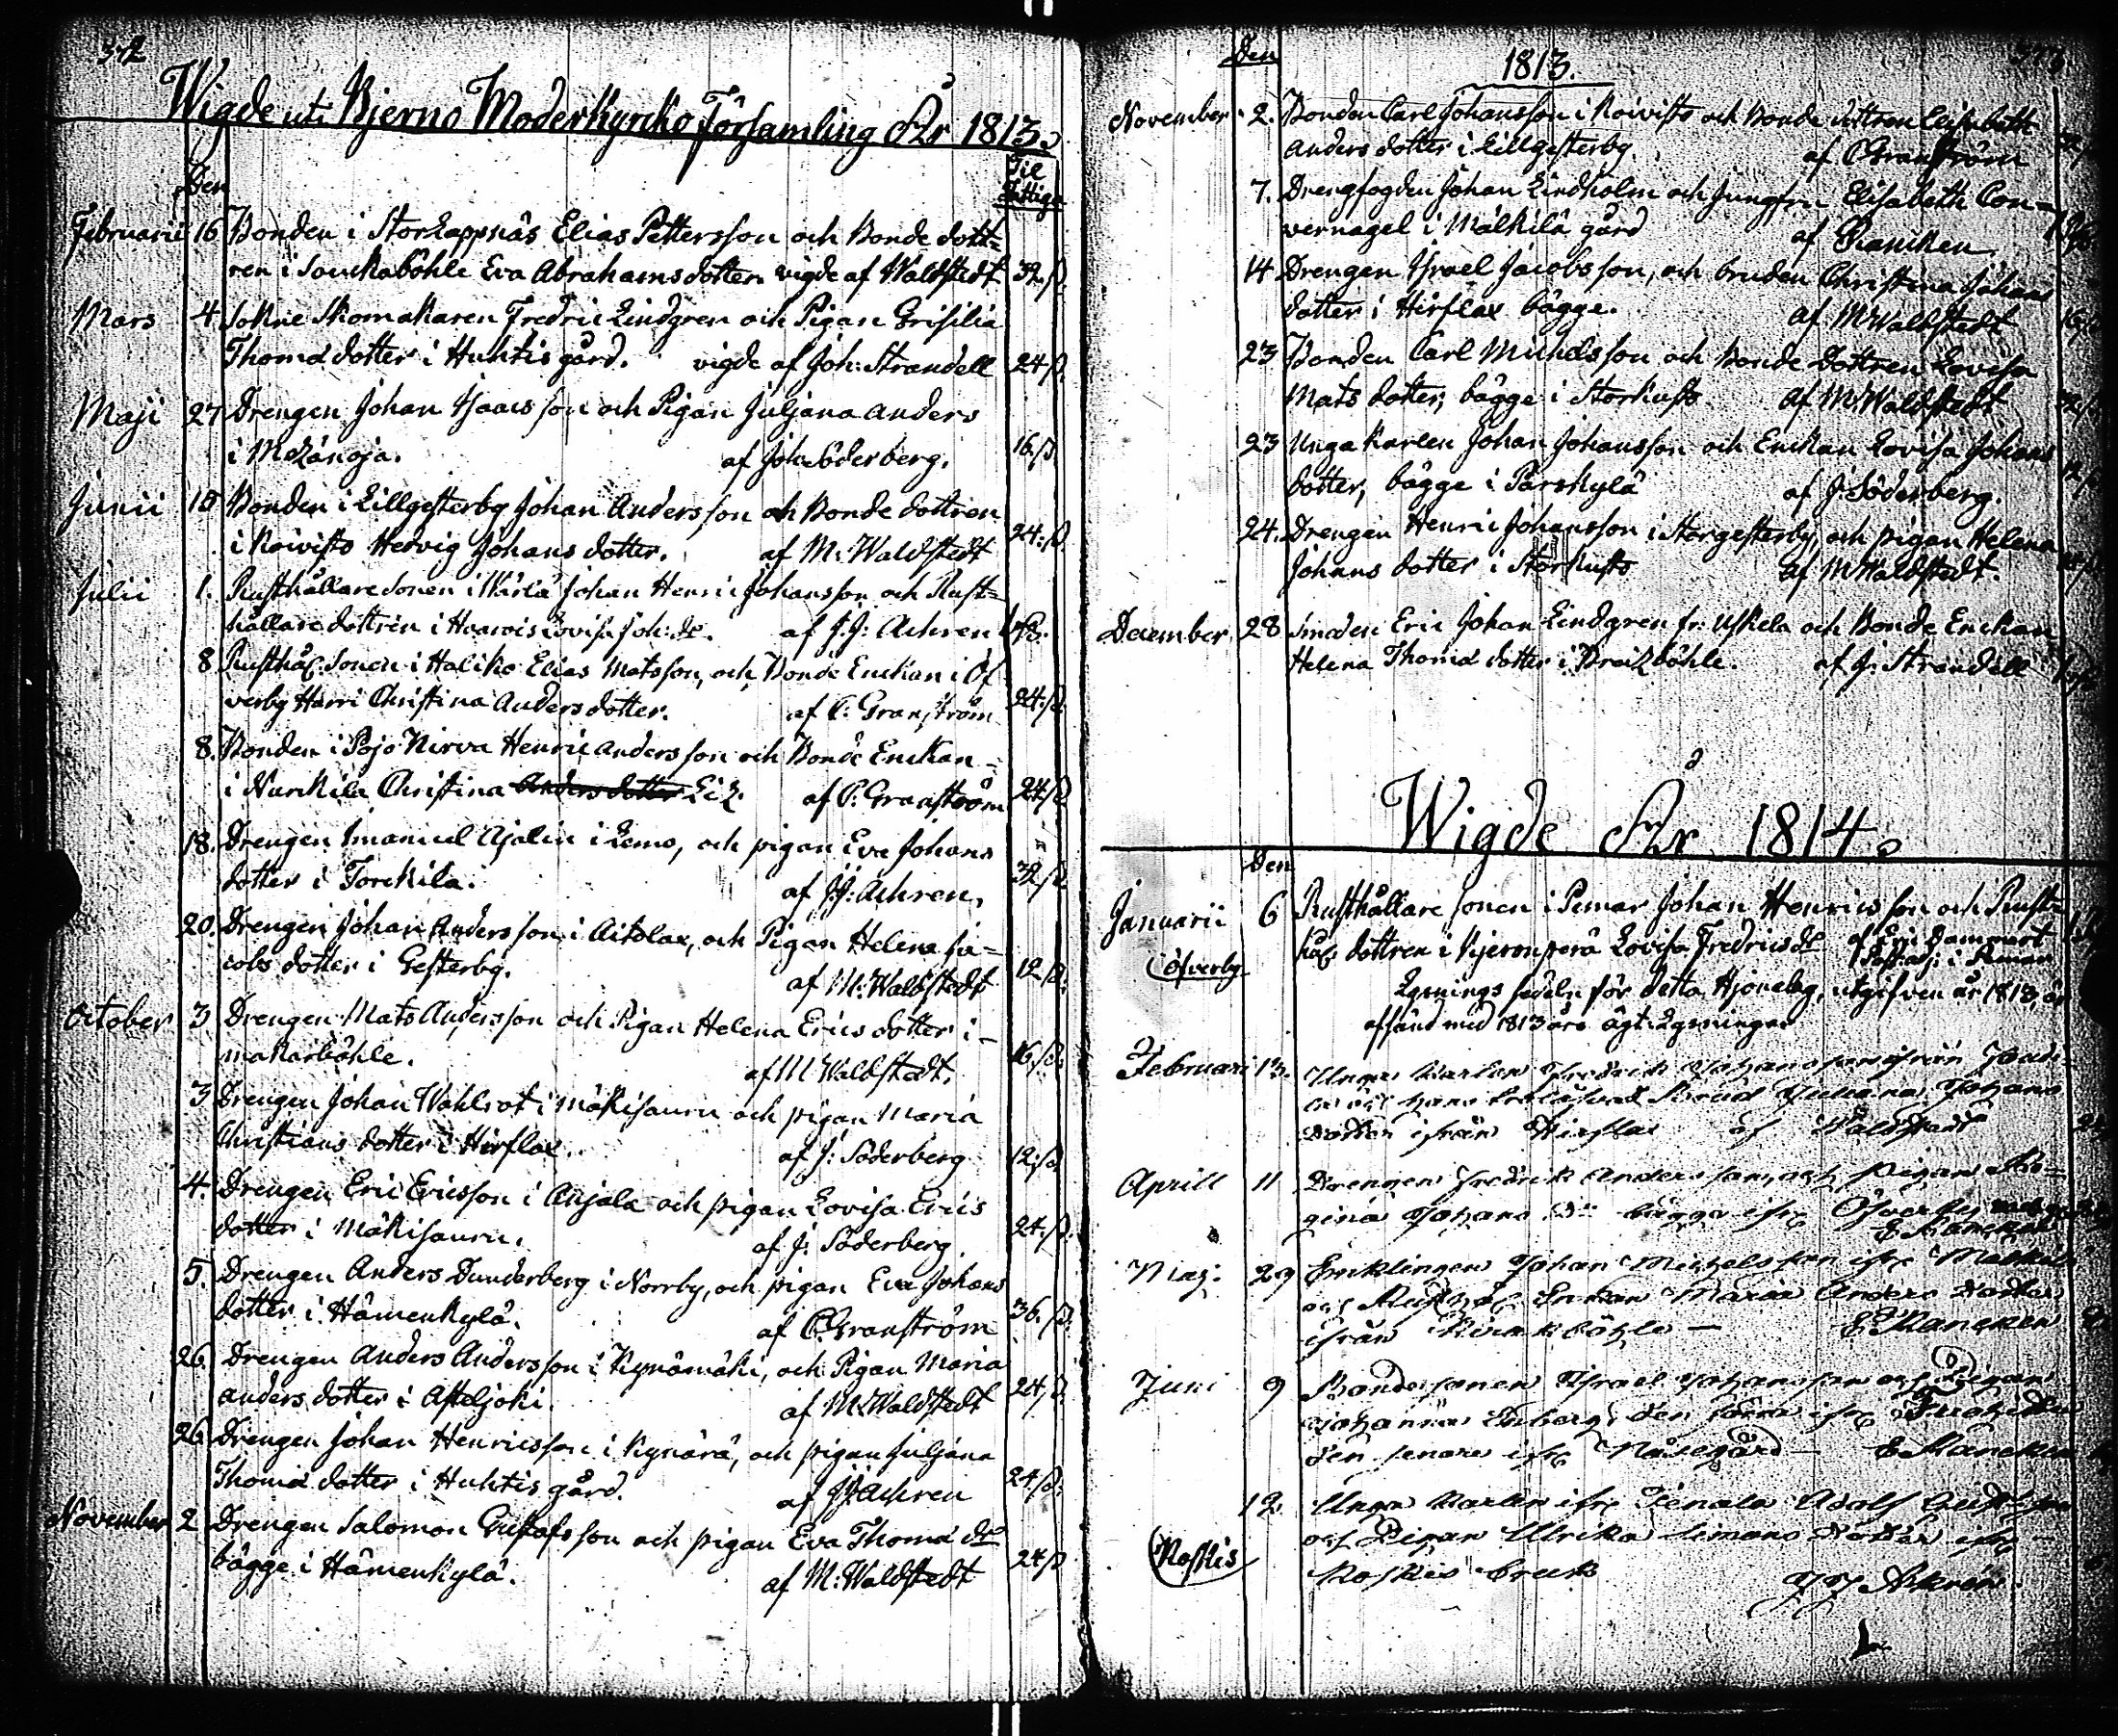 372
Wigde uti Bjerno Moderkyrcko Församling År 1813.
Den
Til Fattiga
Februarii 16 Bonden i Storlappnäs Elias Pettersson och Bonde dott=
ren i Sauckaböhle Eva Abrahams dotter vigde af Waldstedt 32 ß.
Mars 4 Sokne Skomakaren Fredric Lindgren och Pigan Grisilia
Thomæ dotter i Huhtis gård. vigde af Joh: Strandell 24 ß.
Maji 27 Drengen Johan Isaacsson och Pigan Juljana Anders
i Melänoja. af Joh: Söderberg. 16 ß.
Junii 10 Bonden i Lillgesterby Johan Andersson och Bonde dottren
i Koivisto Hedvig Johans dotter. af M. Waldstedt 24 ß
Julii 1. Rusthållare Sonen i Kärlä Johan Henric Johansson och Rust=
hållare dottren i Haarois Lovisa Joh: dr. af J.J: Achren
8 Rusthål. Sonen i Haliko Elias Matsson, och Bonde Enckan i Öf
verby Harri Christina Anders dotter. af C: Granström 24 ß.
8. Bonden i Pojo Nirva Henric Andersson och Bonde Enckan
i Nurckila Christina Anders dotter Lil. af C: Granström 24 ß
18. Drengen Imanuel Ajalin i Lemo, och pigan Eva Johans
dotter i Torckila. af J.J: Achren, 32 ß.
20. Drengen Johan Andersson i Aitolax, och Pigan Helena Ja=
cobs dotter i Gesterby. af M: Waldstedt 12 ß.
October 3 Drengen Mats Andersson och Pigan Helena Erics dotter i
makarböhle. af M Waldstedt. 16 ß.
3 Drengen Johan Wahlrot i Mäkisauru och pigan Maria
Christians dotter i Hirflax. af J: Söderberg 12 ß.
4. Drengen Eric Ericsson i Anjala och pigan Lovisa Erics
dotter i Mäkisauru. af J: Söderberg. 24 ß.
5. Drengen Anders Dunderberg i Norrby, och pigan Eva Johans
dotter i Hämenkylä. af C. Granström 36 ß.
26. Drengen Anders Andersson i Kynämäki, och Pigan Maria
anders dotter i Asteljoki. af M: Waldstedt 24 ß.
26. Drengen Johan Henricsson i Kynärä, och pigan Juljana
Thomæ dotter i Huhtis gård. af J.J: Achren 24 ß.
November 2 Drengen Salomon Gustafsson och pigan Eva Thomæ dr
bägge i Hämenkylä. af M: Waldstedt 24 ß
Den 1813. 373
November 2. Bonden Carl Johansson i Koivisto och Bonde dottren Elisabeth
Anders dotter i Lillgesterby. af C Granström
7. Drengfogden Johan Lindholm och Jungfru Elisabeth Con=
vernagel i Mälkilä gård af Rancken
14 Drengen Israel Jacobsson, och bruden Christina Johans
dotter i Hirflax bägge. af M Waldstedt
23 Bonden Carl Michelsson och Bonde Dottren Lovisa
Mats dotter, bägge i Storkusto af M. Waldstedt
23 Unga Karlen Johan Johansson och Enckan Lovisa Johans
dotter, bägge i Pärskylä af J: Söderberg.
24. Drengen Henric Johansson i Storgesterby, och pigan Helena
Johans dotter i Storkusto af M Waldstedt.
December 28 Smeden Eric Johan Lindgren fr: Uskela och Bonde Enckan
Helena Thomæ dotter i Breitböhle. af J: Strandell
Wigde År 1814.
Den
Januarii 6 Rusthållare sonen i Pemar Johan Henricsson och Rust=
hål. dottren i Kjeronperä Lovisa Fredrics dr af Eric Dammert
(Öfverby Past. adj: i Pemar
Lysnings sedeln för detta Hjonelag, utgifven år 1813, är
afsänd med 1813 års ägt. Lysningar
Februari 13. Unga Karlen Fredrich Johansson ifrån
och hans trolofvad Brud Juliana Johans
dotter ifrån Hirflax af Waldstedt
Aprill 11 Drengen Fredrik Andersson, och pigan Re=
gina Johans dr bägge ifr. Öfverby
E Rancken
Maj. 29 Encklingen Johan Michelsson ifr.
och Rusth. Enkan Maria Anders Dotter
ifrån E Rancken
Juni 9 Bonde sonen Israel Johansson och Pigan
Johanna Enberg, den förra ifr.
den senare ifr. Näsegård E Rancken
12. Unga Karlen ifr. Tenala Adolf
och Pigan Ulrika Simons Dotter ifr.
(Koskis) Koskis bruk J J Achren.